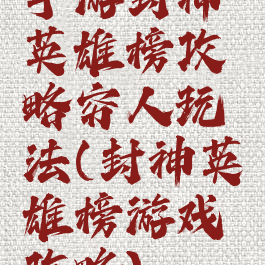 手游封神
英雄榜攻
略穷人玩
法(封神英
雄榜游戏
攻略)